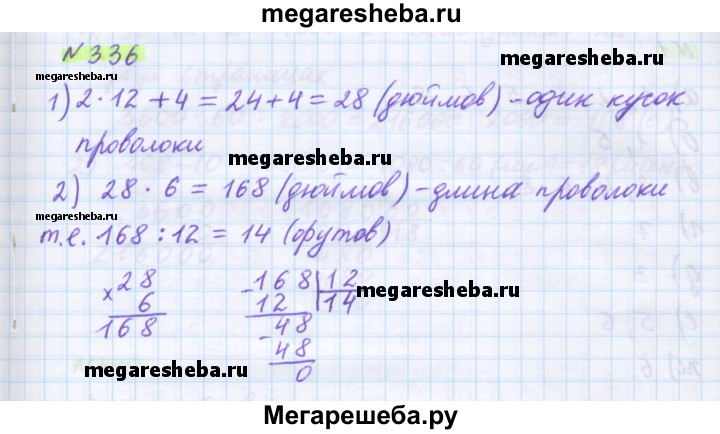 megaresheba.ru
№ 336
megaresheba.ru
megaresheba.ru
1) 2·12+4 = 24+4 = 28 (дюймов) - один кусок
проволоки
megaresheba.ru
2) 28 · 6 = 168 (дюймов) - длина проволоки
megaresheba.ru
т.е. 168 : 12 = 14 (футов)
× 28
6
168
- 168 | 12
12 14
- 48
48
0
megaresheba.ru
megaresheba.ru
Мегарешеба.ру